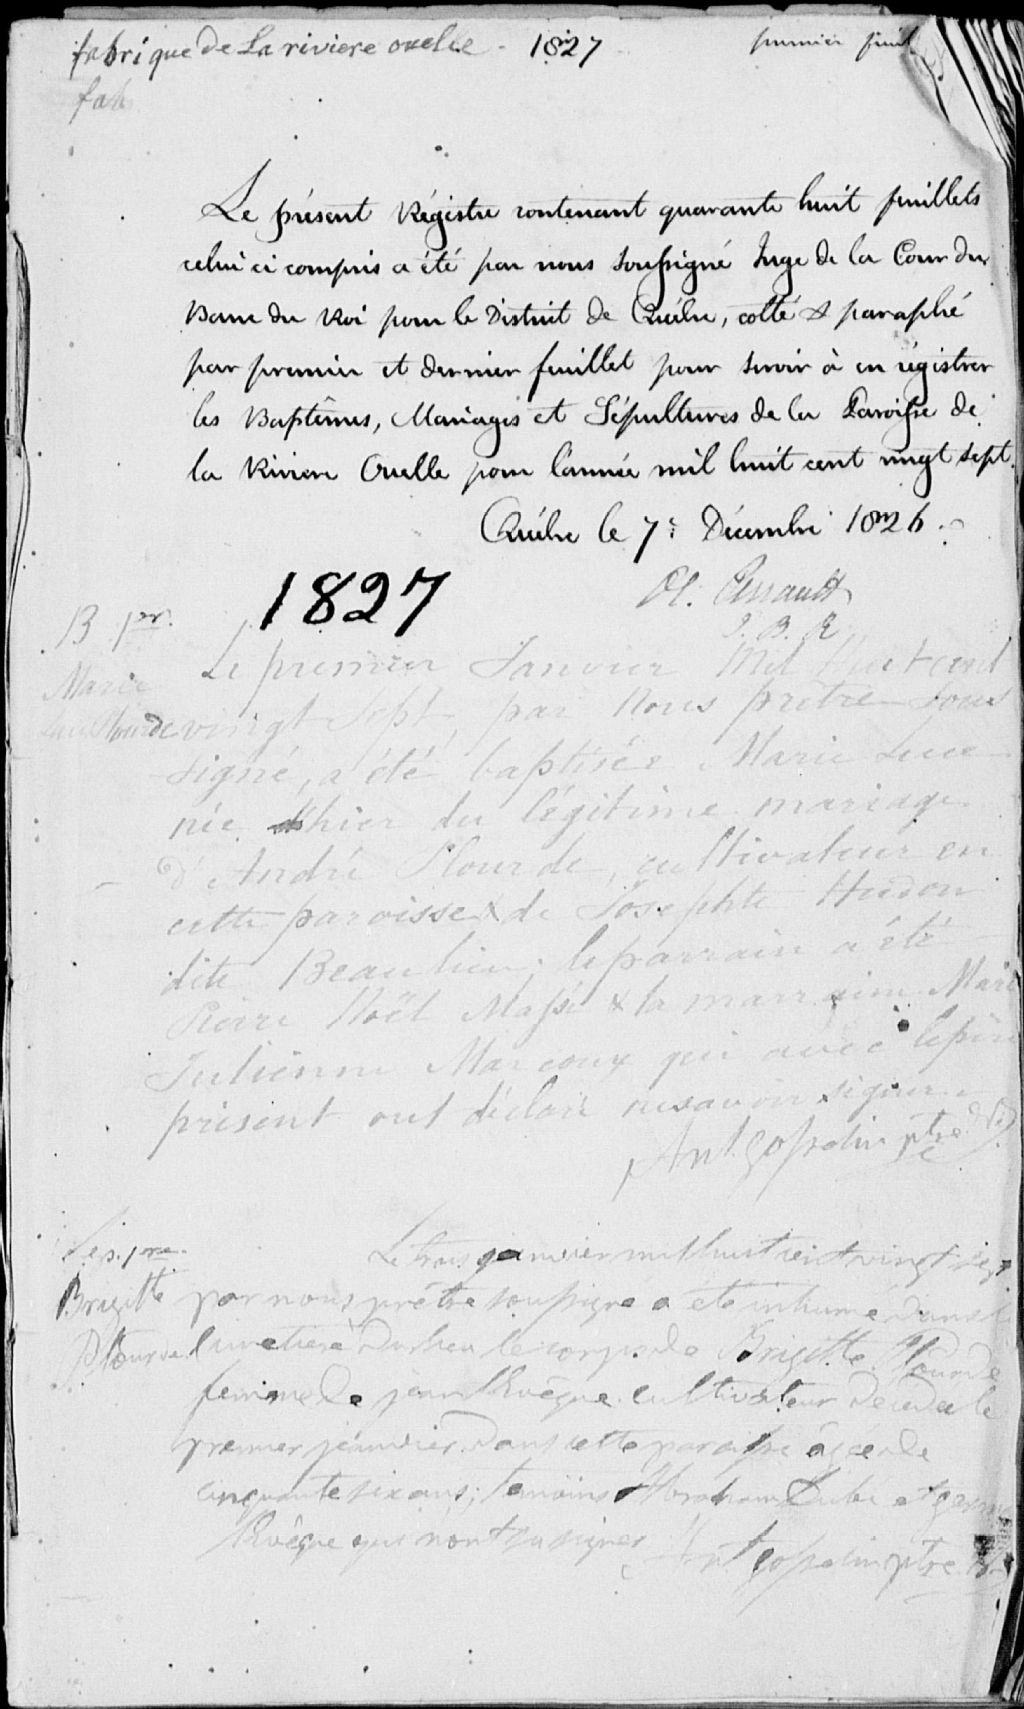 fabrique de La riviere ouelle - 1827 premier feuil
fab
Le présent Régistre contenant quarante huit feuillets
celui ci compris a été par nous soussigné Juge de la Cour du
Banc du Roi pour le District de Québec, cotté & paraphé
par premier et dernier feuillet pour servir à en régistrer
les Baptêmes, Mariages et Sépultures de la Paroisse de
la Riviere Ouelle pour l'année mil huit cent vingt sept.
Québec le 7e Décembre 1826.
Ol. Perrault
J. B. R.
1827
B pr.
Marie
Luce Plourde
Le premier Janvier Mil huit cent
vingt Sept, par Nous prêtre sous
signé, a été baptisée Marie Luce
née hier du légitime mariage
d'André Plourde, cultivateur en
cette paroisse & de Josephte Hudon
dite Beaulieu; le parrain a été
Pierre Noël Massé & la marraine Marie
Julienne Marcoux qui avec le père
présent ont déclaré ne savoir signer.
Ant. Gosselin ptre
Sép. pre.
Brigitte
Plourde
Le trois janvier mil huit cent vingt sept
par nous prêtre soussigné a été inhumé dans le
cimetière du lieu le corps de Brigitte Plourde
femme de jean Lévêque cultivateur décédée le
premier janvier dans cette paroisse âgée de
cinquante six ans; témoins Abraham Dubé et germain
Lévêque qui n'ont su signer
Ant. Gosselin ptre